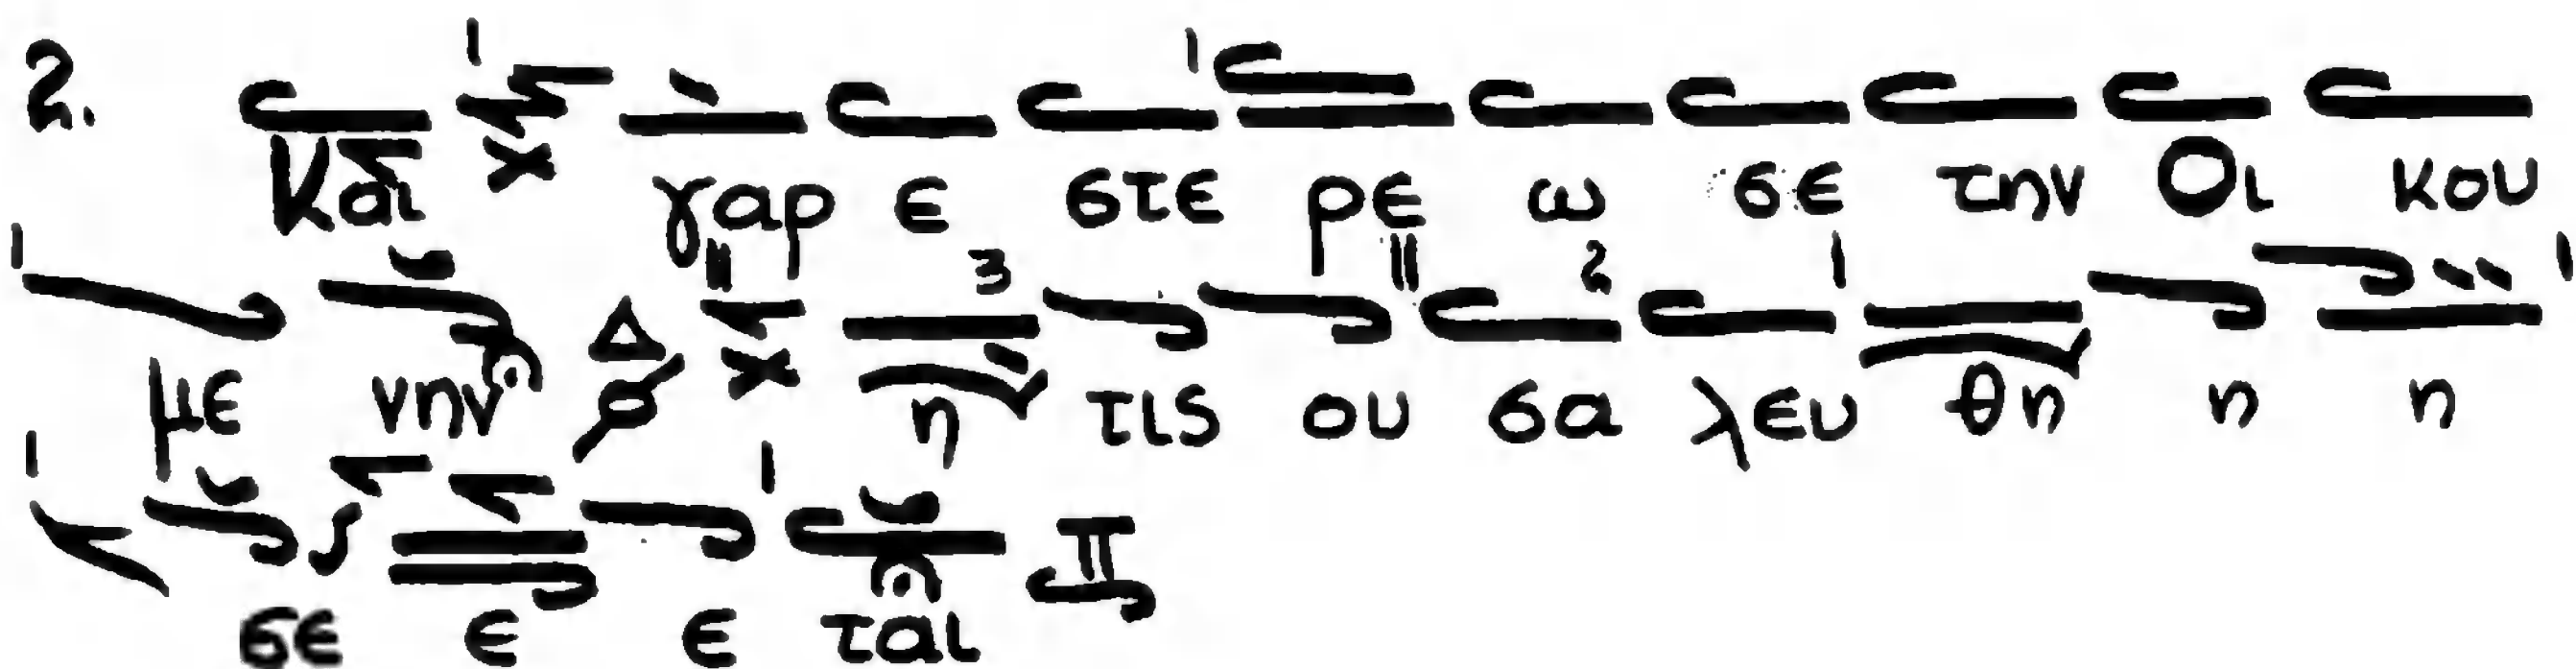 2. Και χ γαρ ε στε ρε ω σε την Οι κου
με νην Δ χ η τις ου σα λευ θη η η
σε ε ε ται π